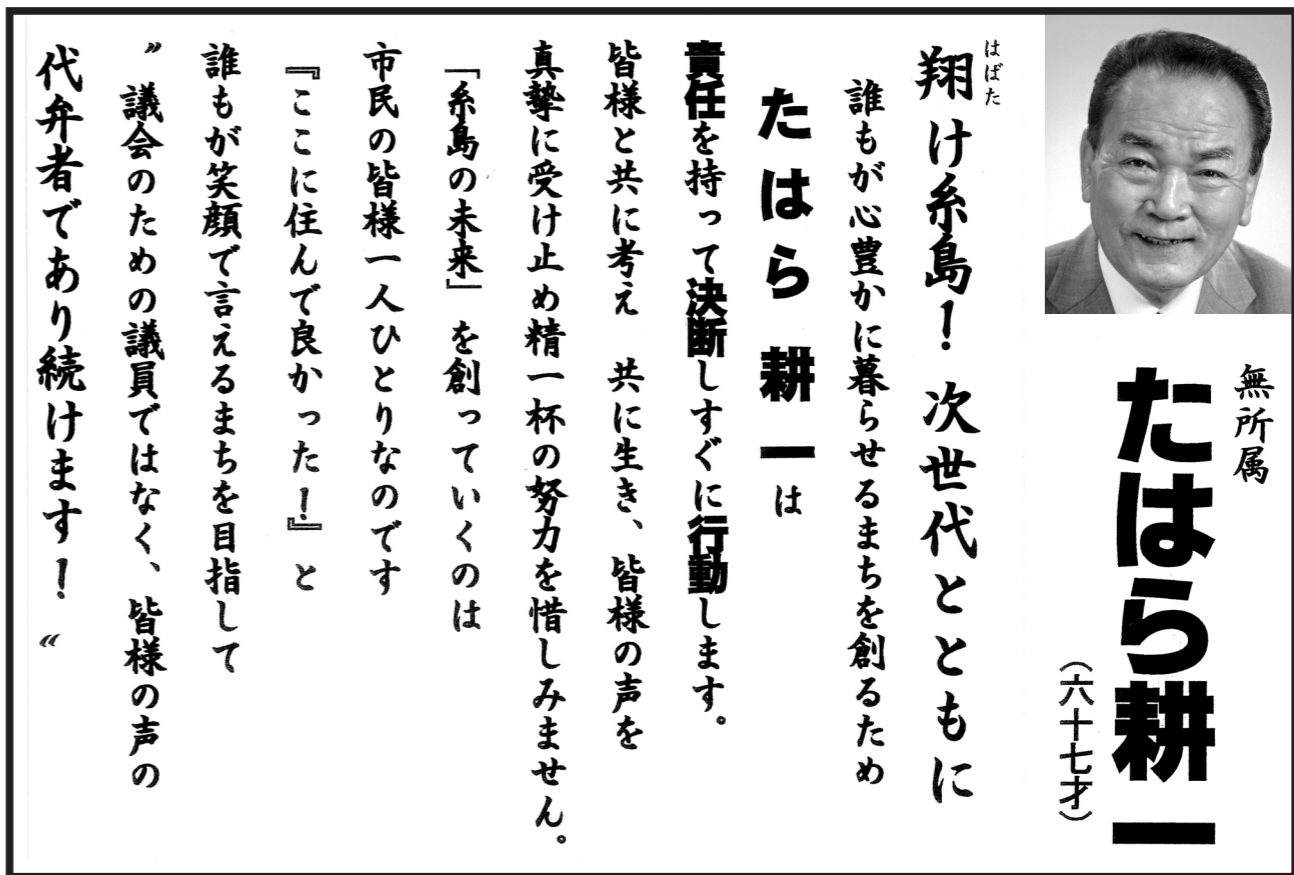 無所属
たはら耕一
(六十七才)
はばた
翔け糸島！次世代とともに
誰もが心豊かに暮らせるまちを創るため
たはら 耕一は
責任を持って決断しすぐに行動します。
皆様と共に考え 共に生き、皆様の声を
真摯に受け止め精一杯の努力を惜しみません。
「糸島の未来」を創っていくのは
市民の皆様一人ひとりなのです
『ここに住んで良かった！』と
誰もが笑顔で言えるまちを目指して
〝議会のための議員ではなく、皆様の声の
代弁者であり続けます！〟